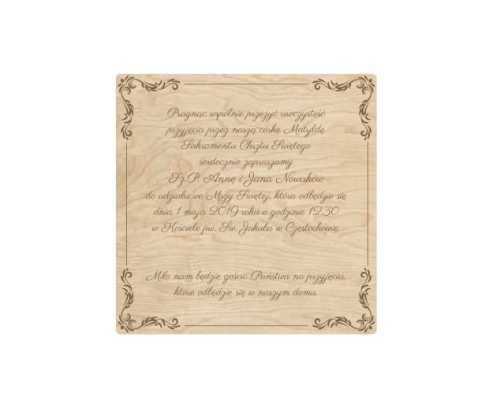 Pragnąc wspólnie przeżyć uroczystość
przyjęcia przez naszą córkę Matyldę
Sakramentu Chrztu Świętego
serdecznie zapraszamy
Sz.P. Annę i Jana Nowaków
do udziału we Mszy Świętej, która odbędzie się
dnia 1 maja 2019 roku o godzinie 12.30
w Kościele pw. Św. Jakuba w Częstochowie.
Miło nam będzie gościć Państwa na przyjęciu,
które odbędzie się w naszym domu.